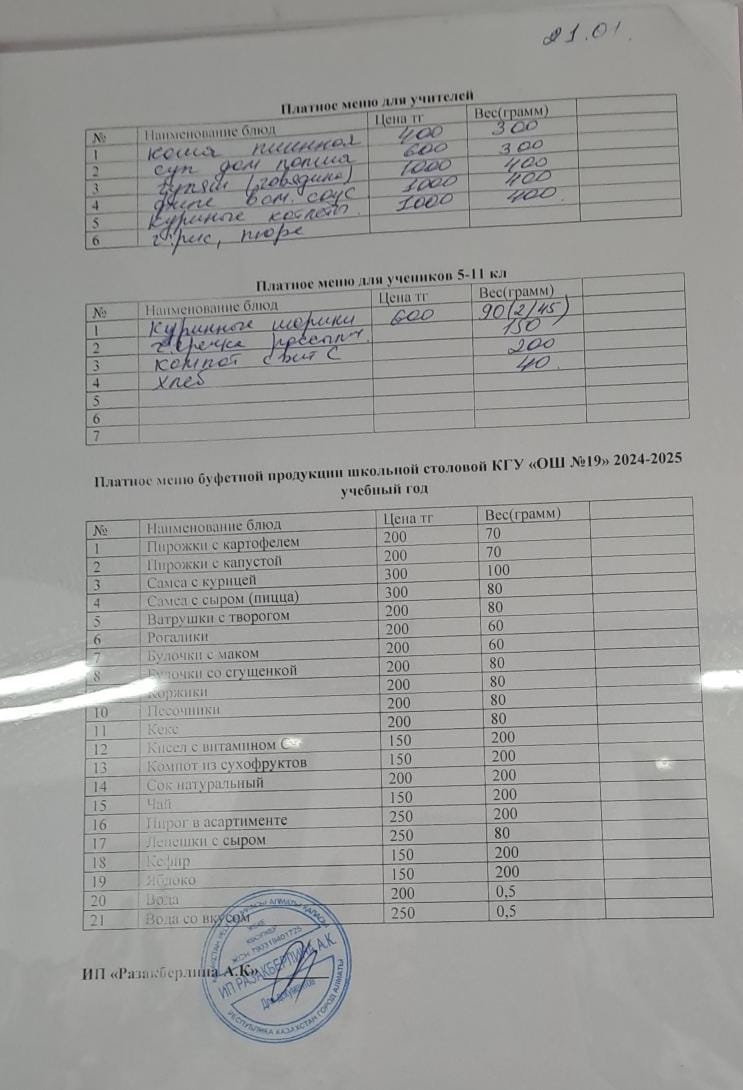 21.01.
Платное меню для учителей
№ Наименование блюд Цена тг Вес(грамм)
1 Каша пшенная 400 300
2 суп дом лапша 600 300
3 (говядина) 1000 400
4 том. соус 1000 400
5 Куриные котлеты 1000 400.
6 г. рис, пюре
Платное меню для учеников 5-11 кл
№ Наименование блюд Цена тг Вес(грамм)
1 Куринные шарики 600 90(2/45)
2 г.гречка рассыпч. 150
3 компот с вит С 200
4 хлеб 40.
5
6
7
Платное меню буфетной продукции школьной столовой КГУ «ОШ №19» 2024-2025
учебный год
№ Наименование блюд Цена тг Вес(грамм)
1 Пирожки с картофелем 200 70
2 Пирожки с капустой 200 70
3 Самса с курицей 300 100
4 Самса с сыром (пицца) 300 80
5 Ватрушки с творогом 200 80
6 Рогалики 200 60
7 Булочки с маком 200 60
8 Булочки со сгущенкой 200 80
Коржики 200 80
10 Песочники 200 80
11 Кекс 200 80
12 Кисел с витамином С 150 200
13 Компот из сухофруктов 150 200
14 Сок натуральный 200 200
15 Чай 150 200
16 Пирог в асартименте 250 200
17 Лепешки с сыром 250 80
18 Кефир 150 200
19 Яблоко 150 200
20 Вода 200 0,5
21 Вода со вкусом 250 0,5
ИП «Разакберлина А.К»
ИП РАЗАКБЕРЛИНА А.К.
Для документов
РЕСПУБЛИКА КАЗАХСТАН ГОРОД АЛМАТЫ